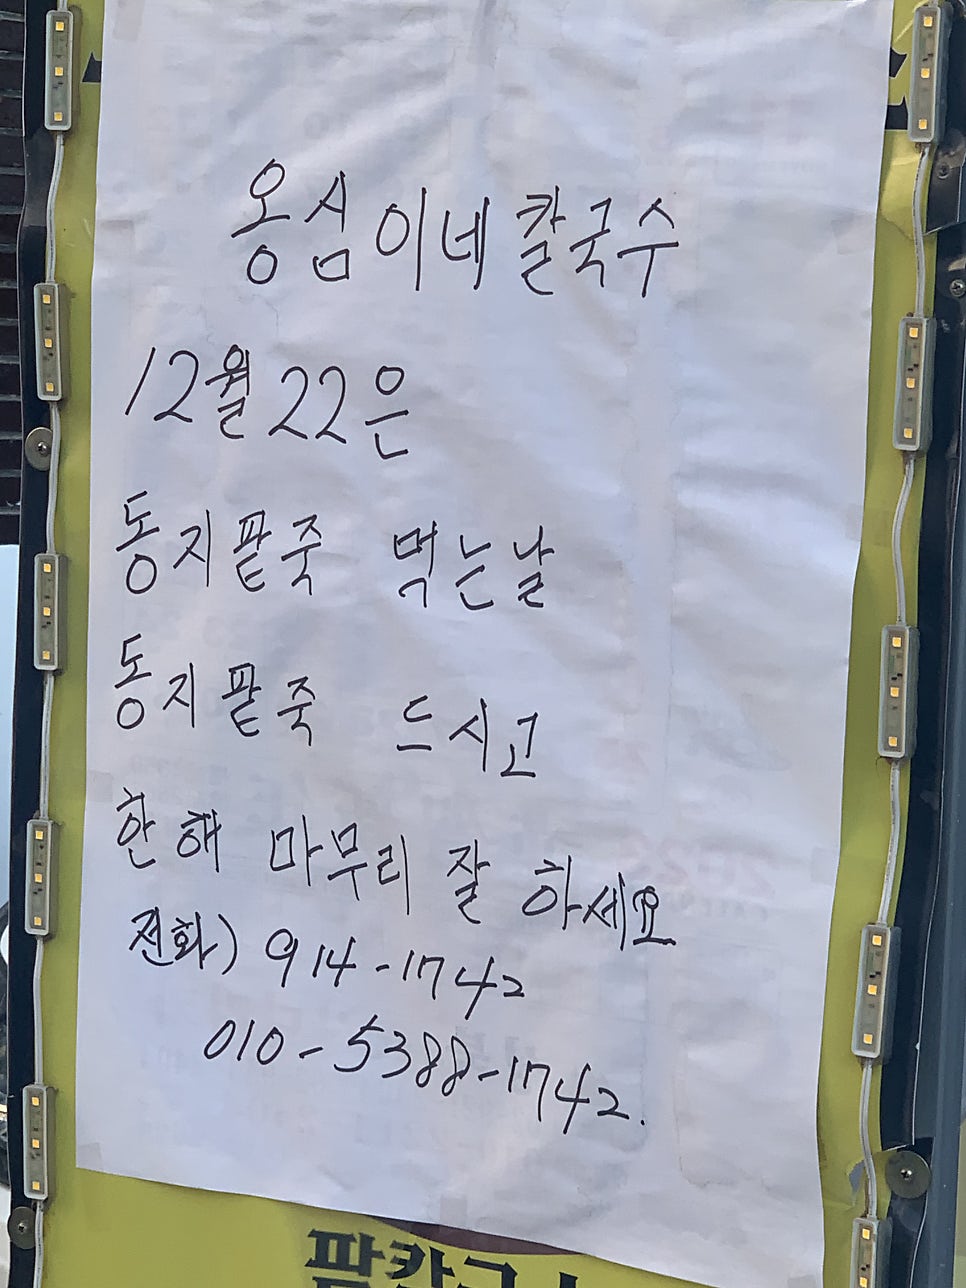 옹심이네칼국수
12월 22은
동지팥죽 먹는날
동지팥죽 드시고
한해 마무리 잘 하세요
전화) 914-1742
010-5388-1742.
팥칼국수